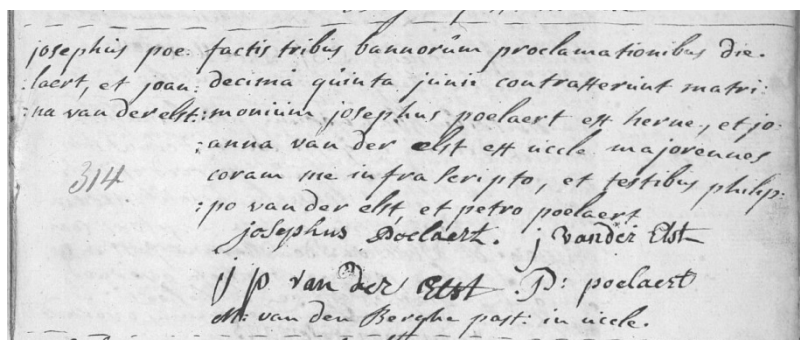 josephus poe: factis tribus bannorum proclamationibus die
:laert, et joan: decima quinta junii contraxerunt matri:
:na van der elst :monium josephus poelaert ex herne, et jo:
:anna van der elst ex uccle majorennes
314 coram me infrascripto, et testibus philip:
:po van der elst, et petro poelaert
josephus Poelaert. j vander Elst
jp van der Elst P: poelaert
M: van den Berghe past: in uccle.